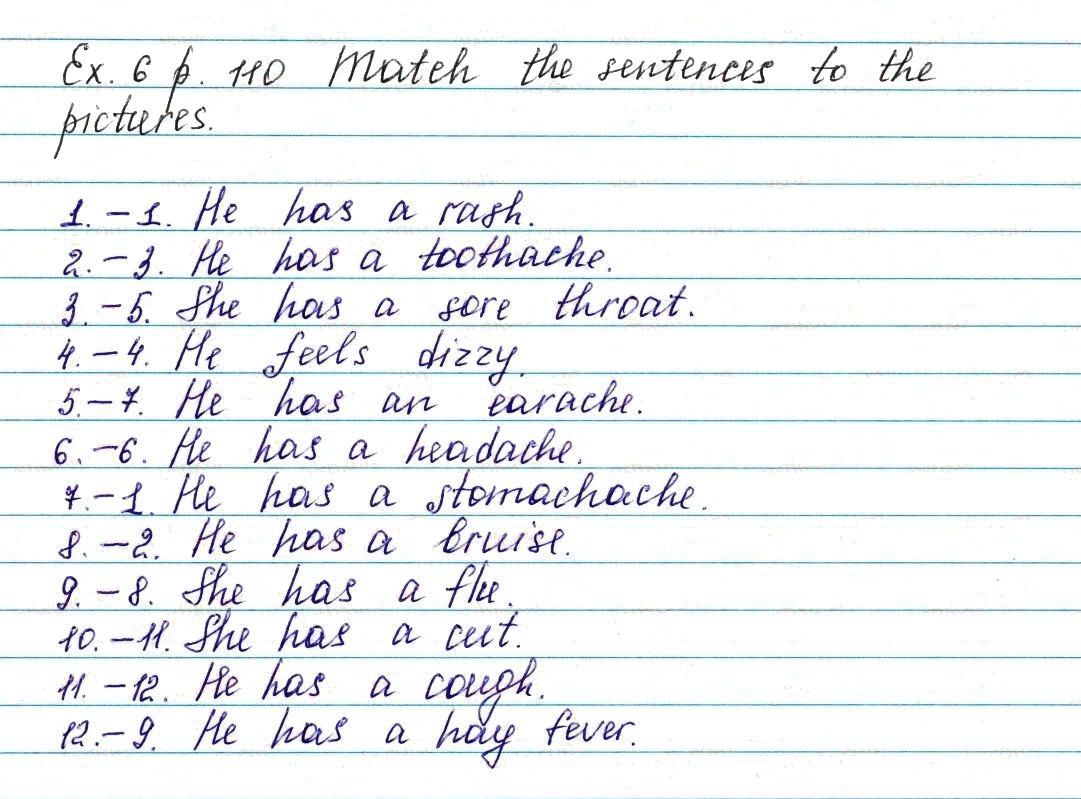 Ex. 6 p. 110 Match the sentences to the
pictures.
1. – 1. He has a rash.
2. – 3. He has a toothache.
3. – 5. She has a sore throat.
4. – 4. He feels dizzy.
5. – 7. He has an earache.
6. – 6. He has a headache.
7. – 1. He has a stomachache.
8. – 2. He has a bruise.
9. – 8. She has a flu.
10. – 11. She has a cut.
11. – 12. He has a cough.
12. – 9. He has a hay fever.